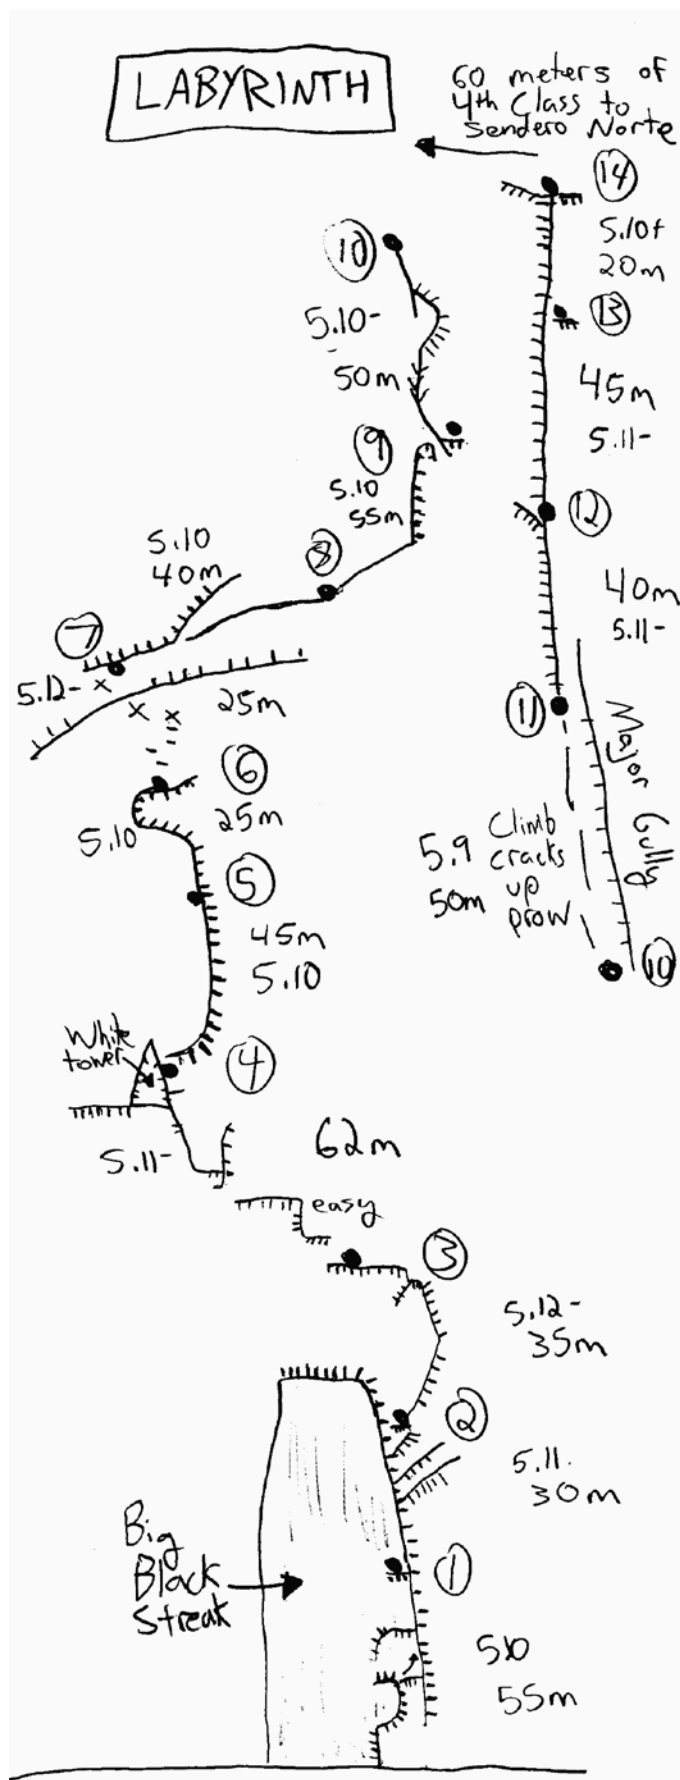 LABYRINTH
60 meters of
4th Class to
Sendero Norte
14
5.10+
20m
13
45m
5.11-
12
40m
5.11-
11
Major Gully
Climb
cracks
up
prow
5.9
50m
10
10
5.10-
50m
9
5.10
55m
8
5.10
40m
7
5.12-
25m
6
25m
5.10
5
45m
5.10
White
tower
4
5.11-
62m
easy
3
5.12-
35m
2
5.11-
30m
Big
Black
Streak
1
5.10
55m